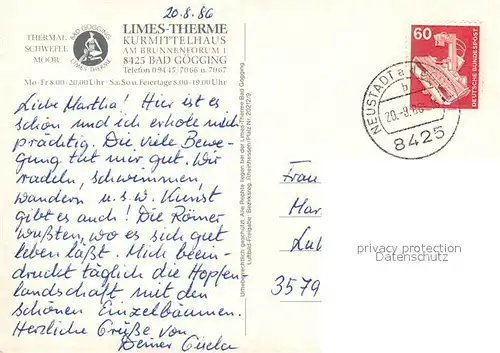 20.8.86
THERMAL
SCHWEFEL
MOOR
BAD GÖGGING
LIMES-THERME
LIMES-THERME
KURMITTELHAUS
AM BRUNNENFORUM 1
8425 BAD GÖGGING
Telefon 09445/7066 u. 7067
Mo-Fr 8.00-20.00 Uhr · Sa. So u. Feiertage 8.00-19.00 Uhr
Liebe Martha! Hier ist es
schön und ich erhole mich
prächtig. Die viele Bewe-
gung tut mir gut. Wir
radeln, schwimmen,
wandern u.s.w. Kunst
gibt es auch! Die Römer
wußten, wo es sich gut
leben läßt. Mich beein-
druckt täglich die Hopfen-
landschaft mit den
schönen Einzelbäumen.
Herzliche Grüße von
Deiner Gisela
Urheberrechtlich geschützt. Alle Rechte liegen bei der Limes-Therme Bad Gögging
60
DEUTSCHE BUNDESPOST
NEUSTADT a
b
20.-8.86
8425
Frau
Mar
Lut
3579
privacy protection
Datenschutz